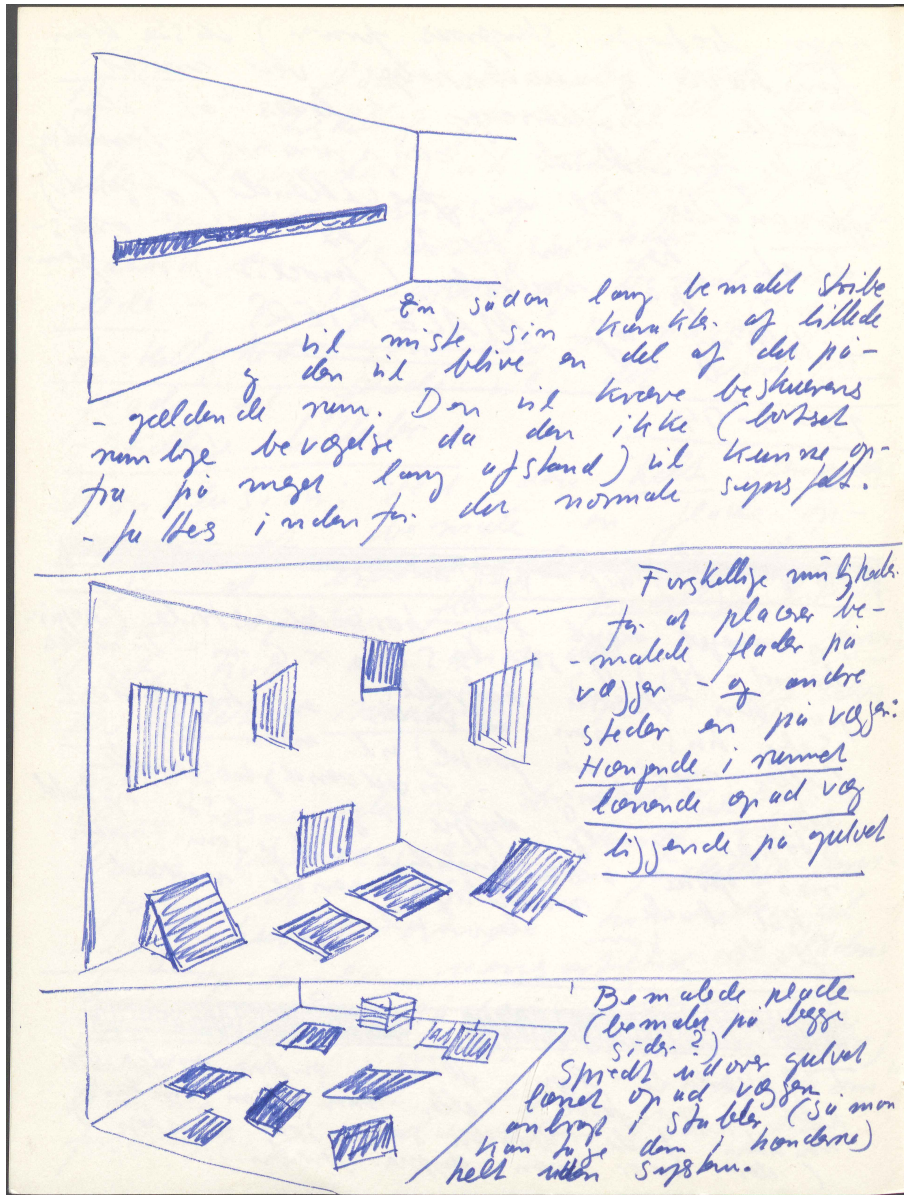 En sådan lang bemalet stribe
vil miste sin karakter af billede
og den vil blive en del af det på-
- gældende rum. Den vil kræve beskuerens
rumlige bevægelse da den ikke (bortset
fra på meget lang afstand) vil kunne op-
- fattes indenfor det normale synsfelt.
Forskellige muligheder
for at placere be-
- malede flader på
vægge - og andre
steder en på vægge:
Hængende i rummet
lænende op ad væg
liggende på gulvet
Bemalede plade
(bemalet på begge
sider?)
Spredt ud over gulvet
lænet op ad væggen
anbragt i stabler (så man
kan tage dem i hænderne)
helt uden system.